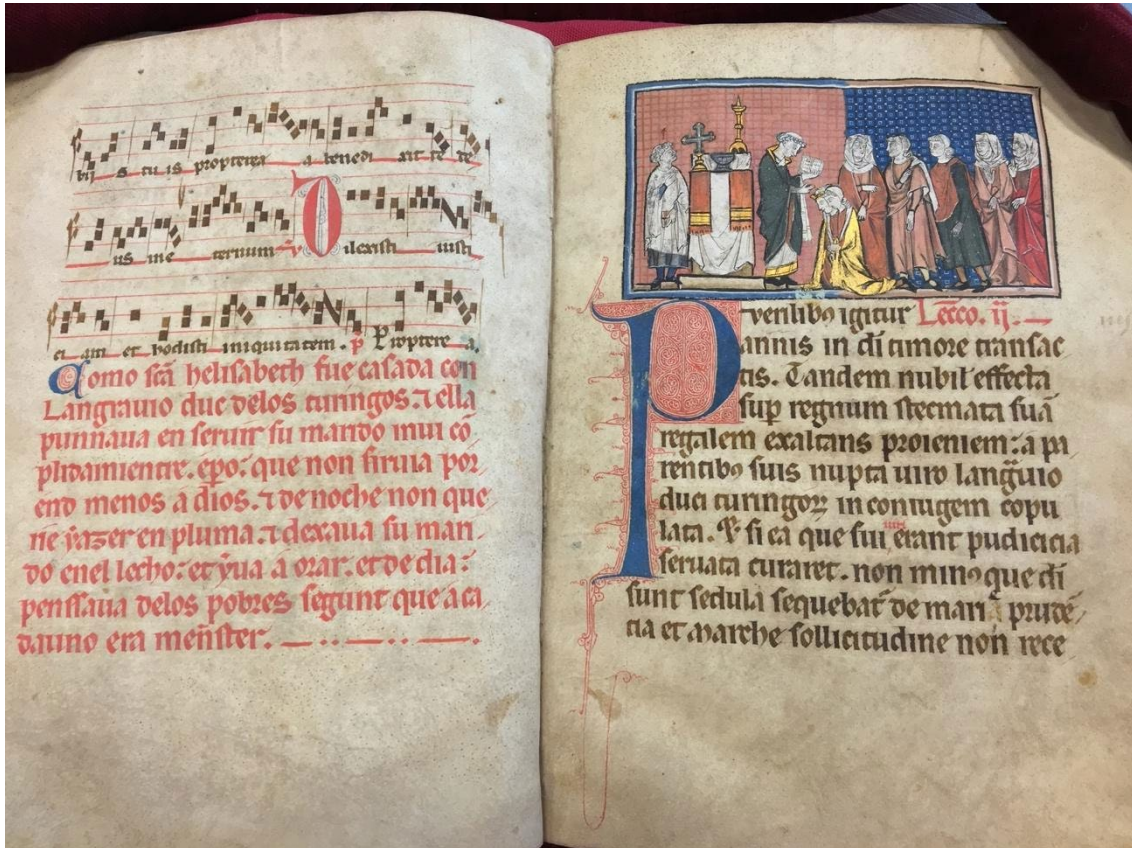 bijs tuis propterea a benedixit te de
us in e ternum ℣ Dilexisti iusti
ci am et hodisti iniquitatem. p̄ Proptere a.
Como sc̄a helisabech fue casada con
Langrauio duc delos turingos. ⁊ ella
punnaua en seruir su marido mui cō
plidamientre. epo: que non siruia por
end menos a dios. ⁊ de noche non que
rie ẏazer en pluma. ⁊ dexaua su mari
do enel lecho: et ẏua a orar. et de dia:
penssaua delos pobres segunt que a ca
dauno era meñster.
Puerilibꝰ igitur Lecc̄o. ij.
annis in di timore transac
tis. Tandem nubil effecta
sup regnum stecmata suā
regalem exaltans proieniem: a pa
rentibꝰ suis nupta uiro langͣuio
duci turingoꝝ in coniugem copu
lata. Et si ea que sui erant pudicicia
seruata curaret. non minꝰ que di
sunt sedula sequebat̄ de mari prudē
cia et marthe sollicitudine non rece